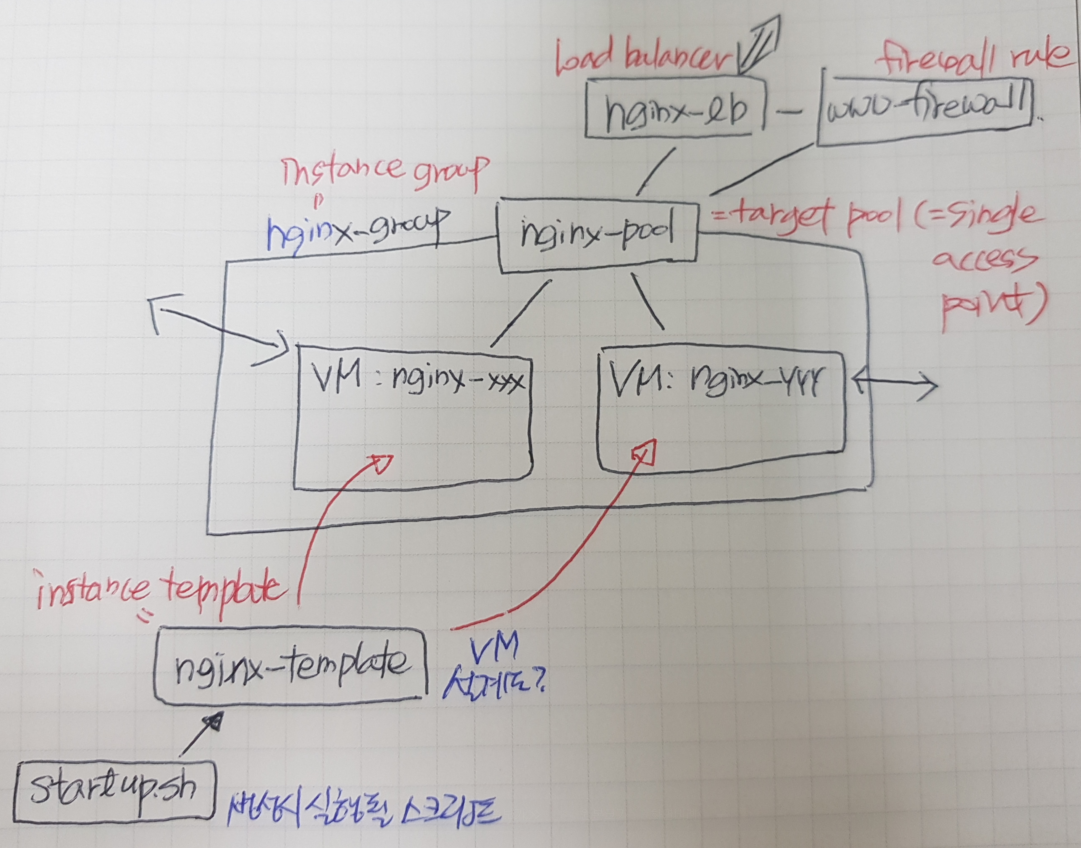 load balancer
firewall rule
nginx-lb
www-firewall
instance group
"
nginx-group
nginx-pool
=target pool (=single
access
point)
VM : nginx-xxx
VM: nginx-yyy
instance template
=
nginx-template
VM
설계도?
startup.sh
생성시 실행될 스크립트